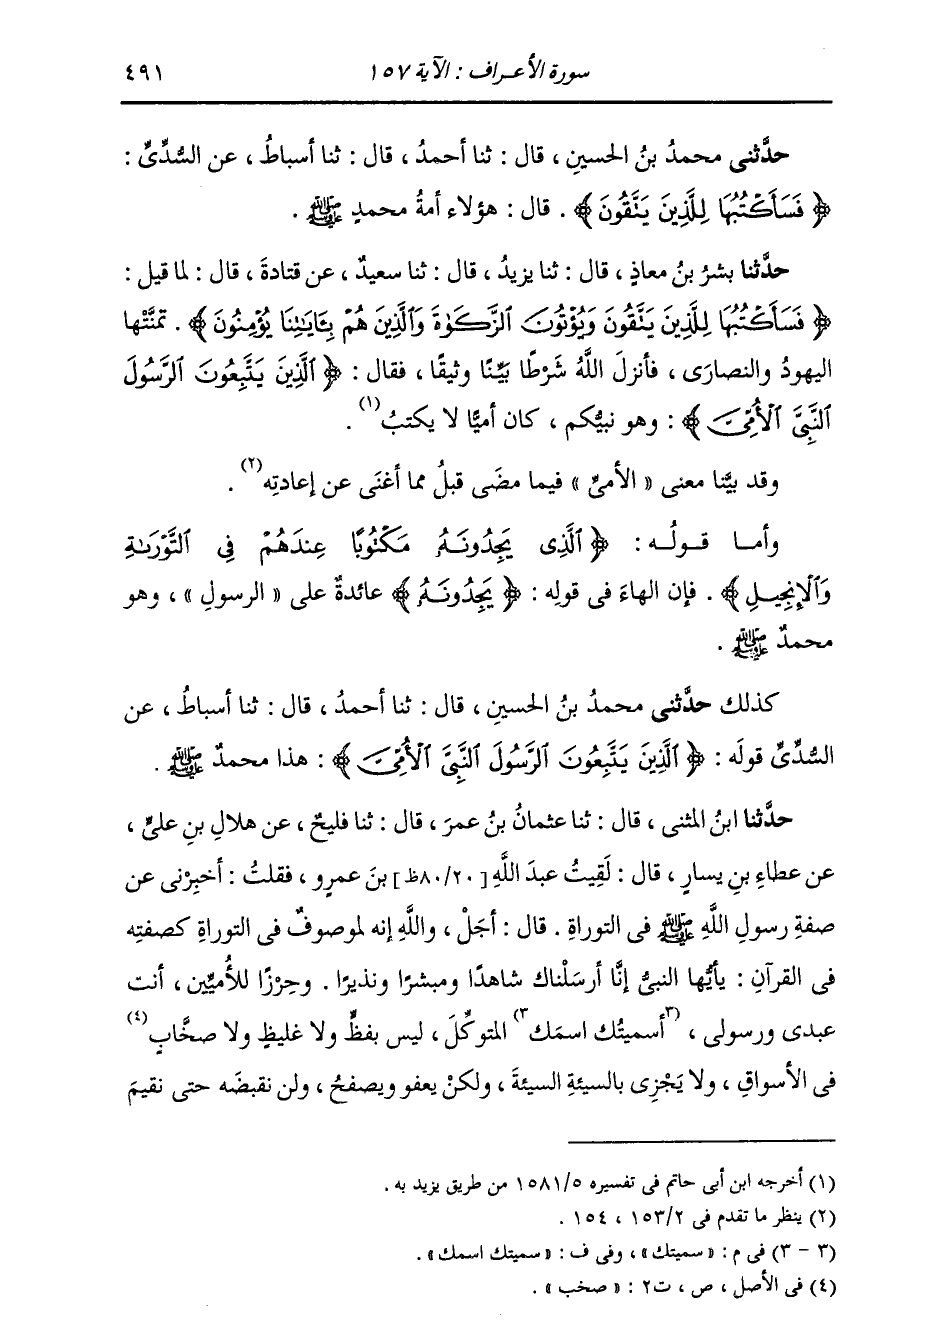 سورة الأعراف : الآية ١٥٧ ٤٩١
حدَّثنى محمدُ بنُ الحسينِ ، قال : ثنا أحمدُ ، قال : ثنا أسباطُ ، عن السُّدِّىِّ :
﴿ فَسَأَكْتُبُهَا لِلَّذِينَ يَتَّقُونَ ﴾ . قال : هؤلاء أمةُ محمدٍ ﷺ .
حدَّثنا بشرُ بنُ معاذٍ ، قال : ثنا يزيدُ ، قال : ثنا سعيدٌ ، عن قتادةَ ، قال : لما قيل :
﴿ فَسَأَكْتُبُهَا لِلَّذِينَ يَتَّقُونَ وَيُؤْتُونَ ٱلزَّكَوٰةَ وَٱلَّذِينَ هُم بِـَٔايَـٰتِنَا يُؤْمِنُونَ ﴾ . تمنَّتْها
اليهودُ والنصارَى ، فأنزلَ اللَّهُ شَرْطًا بَيِّنًا وثيقًا ، فقال : ﴿ ٱلَّذِينَ يَتَّبِعُونَ ٱلرَّسُولَ
ٱلنَّبِىَّ ٱلْأُمِّىَّ ﴾ : وهو نبيُّكم ، كان أميًّا لا يكتبُ (١) .
وقد بيَّنا معنى « الأمىِّ » فيما مضَى قبلُ مما أغنَى عن إعادتِه (٢) .
وأمـا قـولُـه : ﴿ ٱلَّذِى يَجِدُونَهُۥ مَكْتُوبًا عِندَهُمْ فِى ٱلتَّوْرَىٰةِ
وَٱلْإِنجِيـلِ ﴾ . فإن الهاءَ فى قولِه : ﴿ يَجِدُونَهُۥ ﴾ عائدةٌ على « الرسولِ » ، وهو
محمدٌ ﷺ .
كذلك حدَّثنى محمدُ بنُ الحسينِ ، قال : ثنا أحمدُ ، قال : ثنا أسباطُ ، عن
السُّدِّىِّ قولَه : ﴿ ٱلَّذِينَ يَتَّبِعُونَ ٱلرَّسُولَ ٱلنَّبِىَّ ٱلْأُمِّىَّ ﴾ : هذا محمدٌ ﷺ .
حدَّثنا ابنُ المثنى ، قال : ثنا عثمانُ بنُ عمرَ ، قال : ثنا فليحٌ ، عن هلالِ بنِ علىٍّ ،
عن عطاءِ بنِ يسارٍ ، قال : لَقِيتُ عبدَ اللَّهِ [٨٠/٢٠ظ] بنَ عمرٍو ، فقلتُ : أخبِرْنى عن
صفةِ رسولِ اللَّهِ ﷺ فى التوراةِ . قال : أجَلْ ، واللَّهِ إنه لموصوفٌ فى التوراةِ كصفتِه
فى القرآنِ : يأيُّها النبىُّ إنَّا أرسَلْناك شاهدًا ومبشرًا ونذيرًا . وحِرْزًا للأُمِّيِّين ، أنت
عبدى ورسولى ، (٣ أسميتُك اسمَك ٣) المتوكِّلَ ، ليس بفظٍّ ولا غليظٍ ولا صخَّابٍ (٤)
فى الأسواقِ ، ولا يَجْزِى بالسيئةِ السيئةَ ، ولكنْ يعفو ويصفحُ ، ولن نقبضَه حتى نقيمَ
(١) أخرجه ابن أبى حاتم فى تفسيره ١٥٨١/٥ من طريق يزيد به .
(٢) ينظر ما تقدم فى ١٥٣/٢ ، ١٥٤ .
(٣ - ٣) فى م : « سميتك » ، وفى ف : « سميتك اسمك » .
(٤) فى الأصل ، ص ، ت٢ : « صخب » .